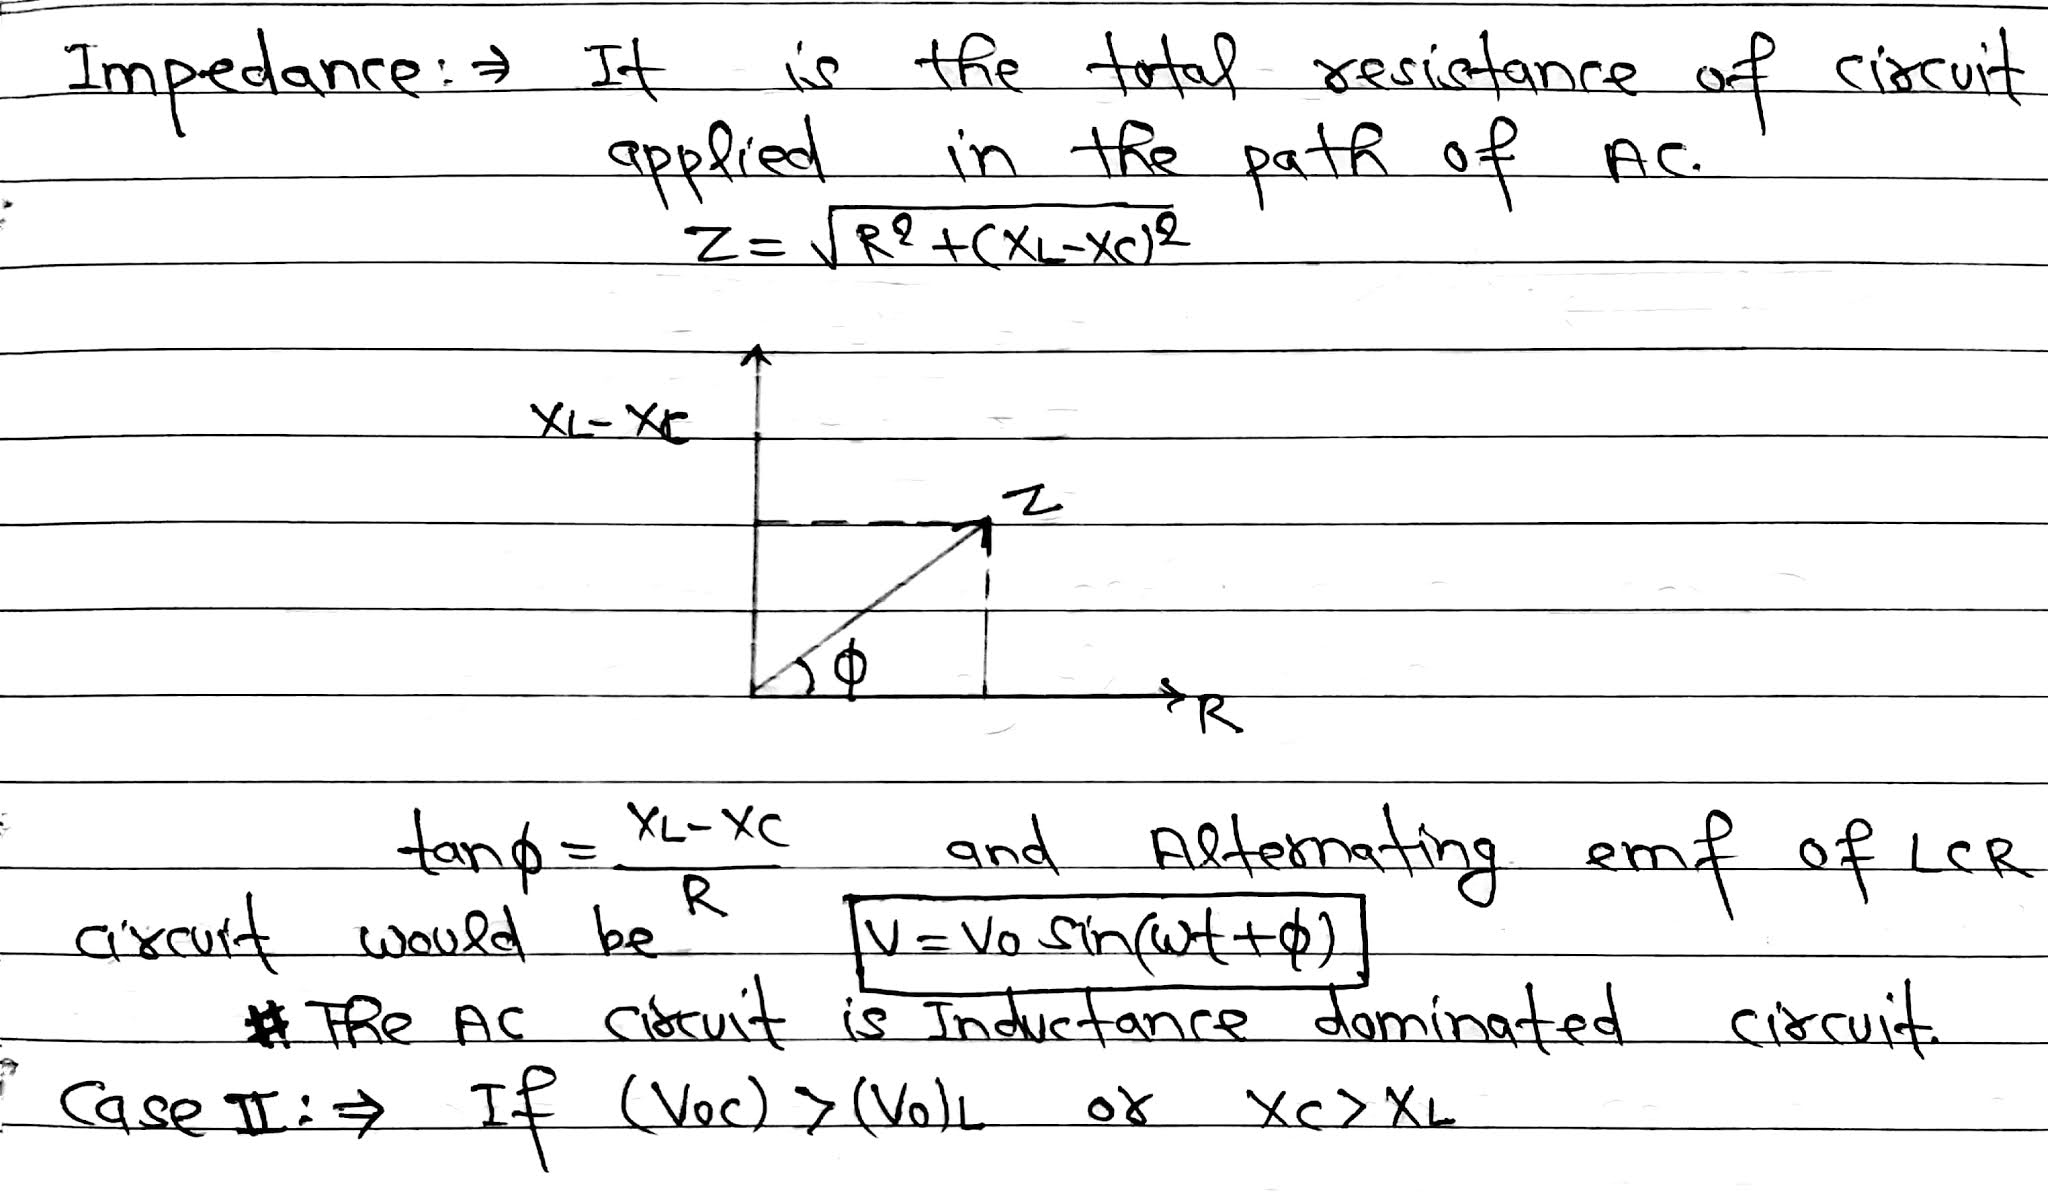 Impedance:⇒ It is the total resistance of circuit
applied in the path of AC.
Z = √R² + (XL-XC)²
XL- XC
Z
ϕ
R
tanϕ = XL-XC / R and Alternating emf of LCR
circuit would be V = Vo sin(ωt + ϕ)
# The AC circuit is Inductance dominated circuit.
Case II:⇒ If (Voc) > (Vo)L or XC > XL